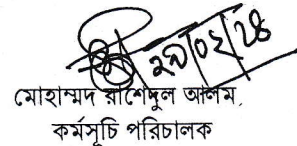 ২৯/০২/২৪
মোহাম্মদ রাশেদুল আলম
কর্মসূচি পরিচালক